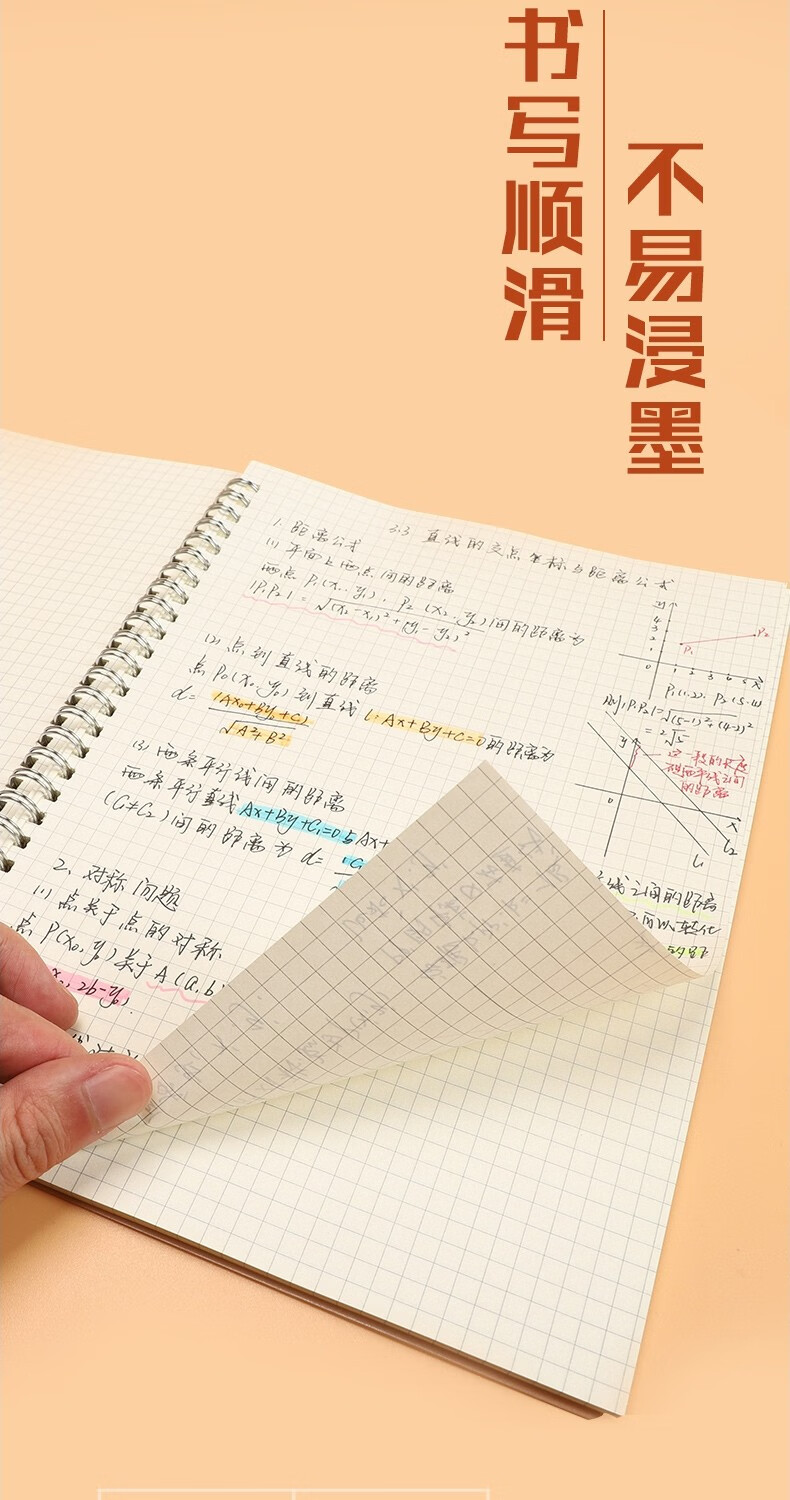 书写顺滑
不易浸墨
3.3 直线的交点坐标与距离公式
1. 距离公式
(1) 平面上两点间的距离
两点 P₁(x₁, y₁), P₂(x₂, y₂)间的距离为
|P₁P₂| = √(x₂-x₁)²+(y₁-y₂)²
(2) 点到直线的距离
点P₀(x₀, y₀)到直线 l: Ax+By+C=0的距离为
d = |Ax₀+By₀+C| / √A²+B²
(3) 两条平行线间的距离
两条平行直线 Ax+By+C₁=0与Ax+
(C₁≠C₂)间的距离为 d= |C
2. 对称问题
(1) 点关于点的对称
点P(x₀, y₀)关于A(a, b
x₀, 2b-y₀).
y
4
3
2
1
0 1 2 3 4 5 6 x
P₁
P₂
P₁(1.2). P₂(5.4)
则|P₁P₂|=√(5-1)²+(4-2)²
=2√5
y
0
x
l₁
l₂
这一段的长度
就两平行线之间
的距离
线之间的距离
可以转化
的距